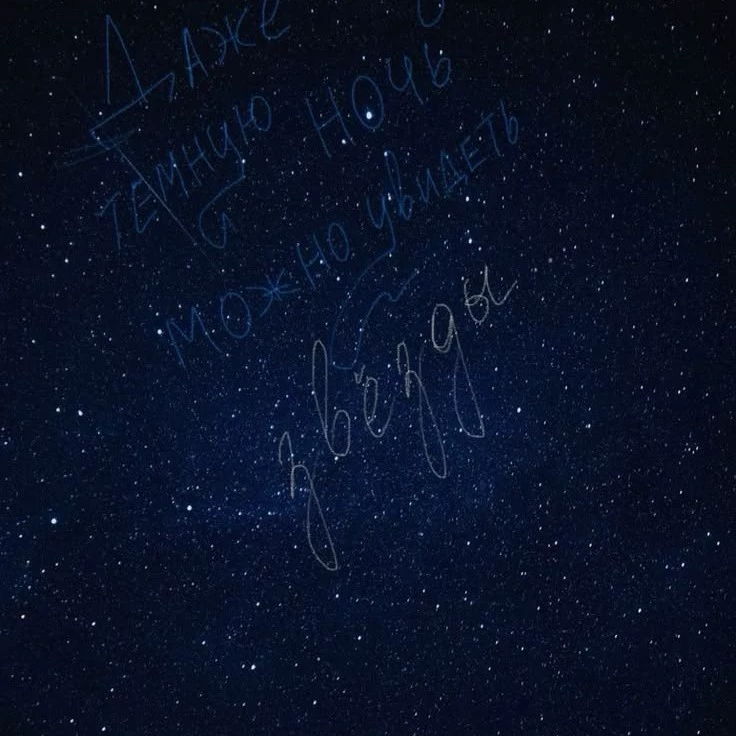 Даже
темную ночь
можно увидеть
звёзды